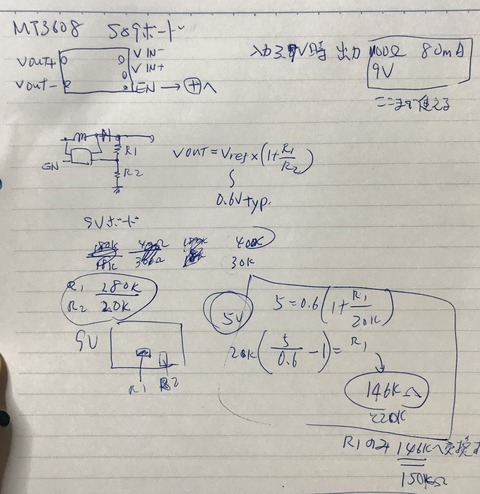 MT3608 5&9ボード
VOUT+
VIN-
VIN+
VOUT-
EN → ⊕へ
入力3.7V時 出力
100Ω 80mA
9V
ここまで使える
R1
EN
R2
VOUT = Vref × (1 + R1/R2)
0.6V typ.
9Vボード
400k
30k
R1 280k
R2 20k
9V
R1 R2
5V
5 = 0.6 (1 + R1/20k)
20k (5/0.6 - 1) = R1
146kへ
220k
R1のみ 146kへ交換
150kΩ